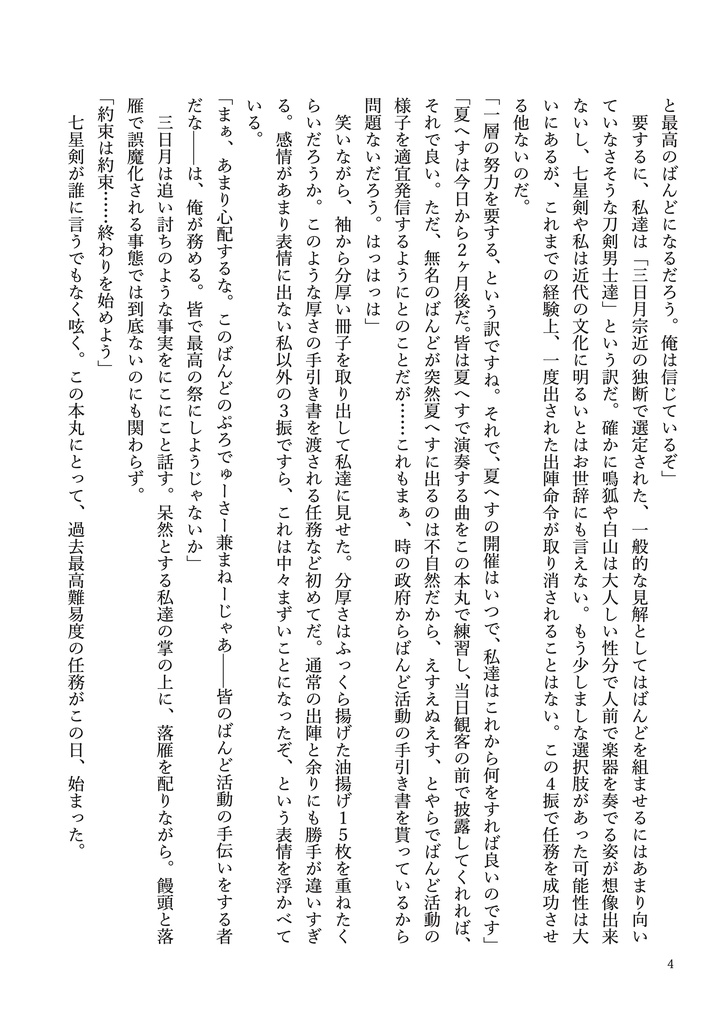 と最高のばんどになるだろう。俺は信じているぞ」
　要するに、私達は「三日月宗近の独断で選定された、一般的な見解としてはばんどを組ませるにはあまり向い
ていなさそうな刀剣男士達」という訳だ。確かに鳴狐や白山は大人しい性分で人前で楽器を奏でる姿が想像出来
ないし、七星剣や私は近代の文化に明るいとはお世辞にも言えない。もう少しましな選択肢があった可能性は大
いにあるが、これまでの経験上、一度出された出陣命令が取り消されることはない。この４振で任務を成功させ
る他ないのだ。
「一層の努力を要する、という訳ですね。それで、夏へすの開催はいつで、私達はこれから何をすれば良いのです」
「夏へすは今日から２ヶ月後だ。皆は夏へすで演奏する曲をこの本丸で練習し、当日観客の前で披露してくれれば、
それで良い。ただ、無名のばんどが突然夏へすに出るのは不自然だから、えすえぬえす、とやらでばんど活動の
様子を適宜発信するようにとのことだが……これもまぁ、時の政府からばんど活動の手引き書を貰っているから
問題ないだろう。はっはっは」
　笑いながら、袖から分厚い冊子を取り出して私達に見せた。分厚さはふっくら揚げた油揚げ１５枚を重ねたく
らいだろうか。このような厚さの手引き書を渡される任務など初めてだ。通常の出陣と余りにも勝手が違いすぎ
る。感情があまり表情に出ない私以外の３振ですら、これは中々まずいことになったぞ、という表情を浮かべて
いる。
「まぁ、あまり心配するな。このばんどのぷろでゅーさー兼まねーじゃあ――皆のばんど活動の手伝いをする者
だな――は、俺が務める。皆で最高の祭にしようじゃないか」
　三日月は追い討ちのような事実をにこにこと話す。呆然とする私達の掌の上に、落雁を配りながら。饅頭と落
雁で誤魔化される事態では到底ないのにも関わらず。
「約束は約束……終わりを始めよう」
　七星剣が誰に言うでもなく呟く。この本丸にとって、過去最高難易度の任務がこの日、始まった。
4